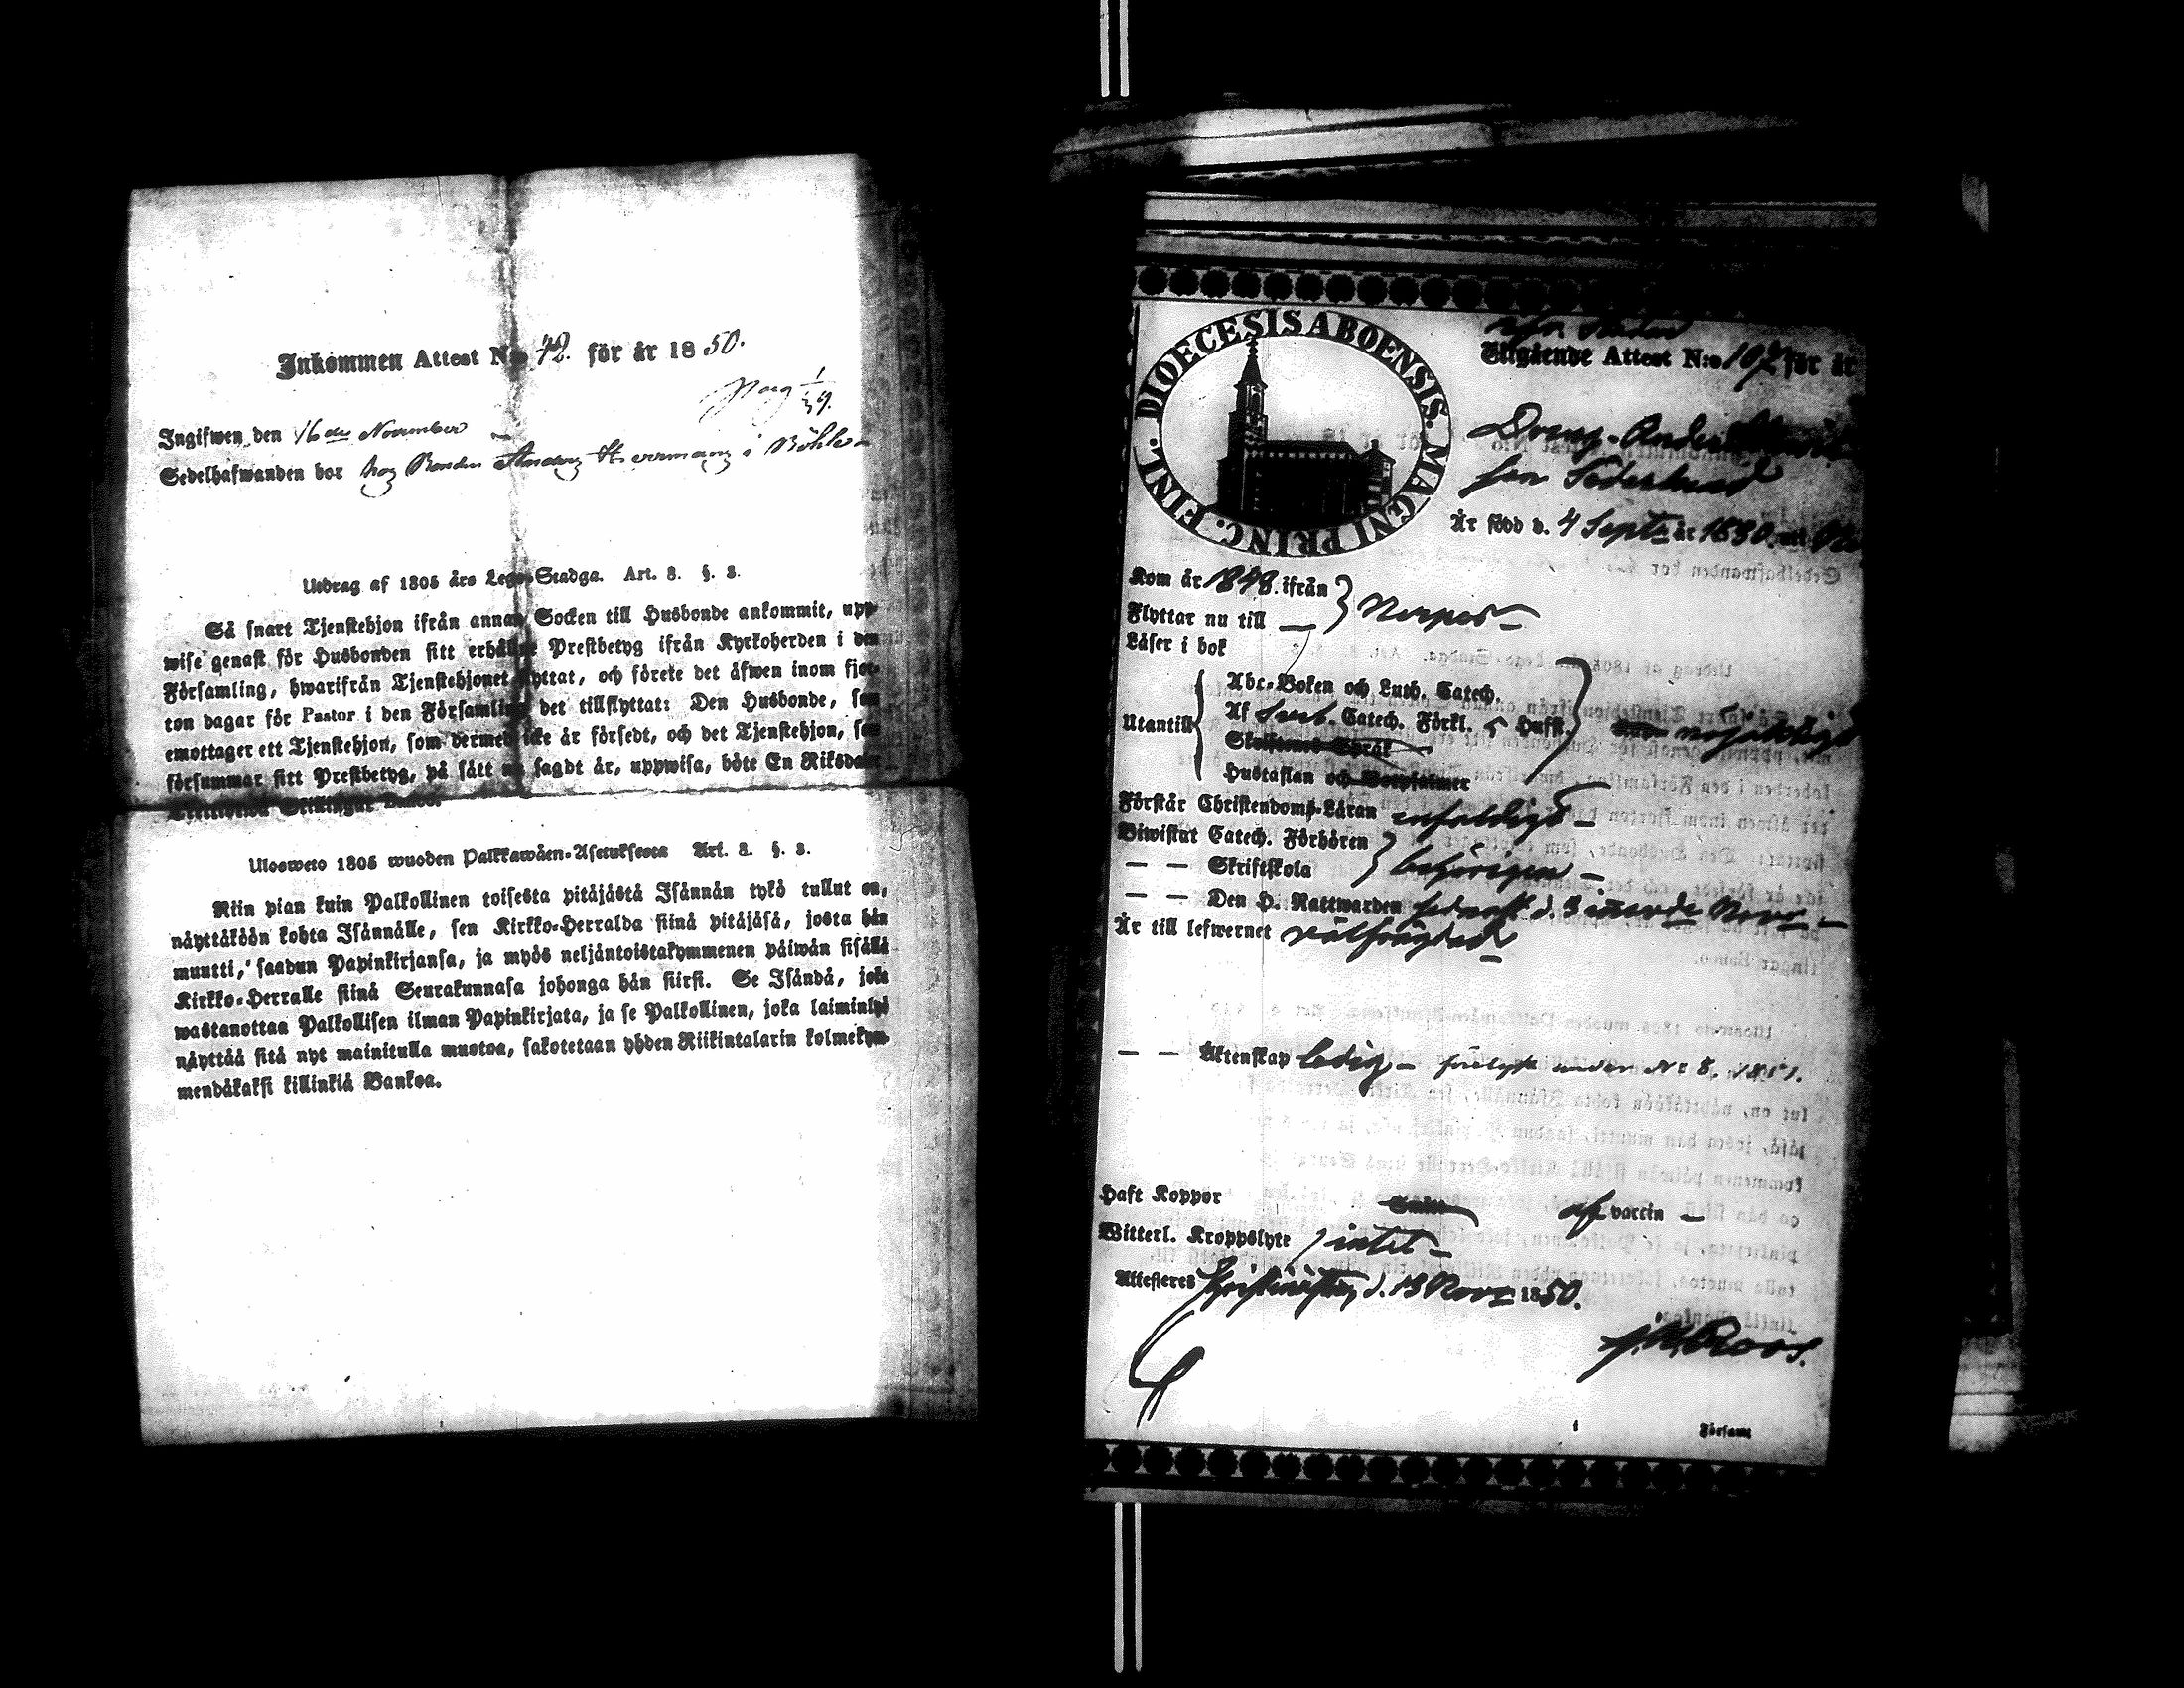 Inkommen Attest N:o 72. för år 1850.
Ingifwen den 16de November
Sedelhafwanden bor hos Bonden i Böhle
Utdrag af 1805 års Lego-Stadga. Art. 8. §. 3.
Så snart Tjenstehjon ifrån annan Socken till Husbonde ankommit, upp-
wise genast för Husbonden sitt Prestbetyg ifrån Kyrkoherden i den
Församling, hwarifrån Tjenstehjonet flyttat, och förete det äfwen inom fjor-
ton dagar för Pastor i den Församling det tillflyttat: Den Husbonde, som
emottager ett Tjenstehjon, som dermed icke är försedt, och det Tjenstehjon, som
försummar sitt Prestbetyg, på sätt nu sagdt är, uppwisa, böte En Riksdaler
Ulosweto 1805 wuoden Palkkawäen-Asetuksesta Art. 8. §. 3.
Niin pian kuin Palkollinen toisesta pitäjästä Isännän tykö tullut on,
näyttäköön kohta Isännälle, sen Kirkko-Herralda siinä pitäjäsä, josta hän
muutti, saadun Papinkirjansa, ja myös neljäntoistakymmenen päiwän sisällä
Kirkko-Herralle siinä Seurakunnasa johonga hän siirsi. Se Isändä, joka
wastanottaa Palkollisen ilman Papinkirjata, ja se Palkollinen, joka laiminlyö
näyttää sitä nyt mainitulla muotoa, sakotetaan yhden Riikintalarin kolmekym-
mendäkaksi killinkiä Bankoa.
DIOECESIS ABOENSIS. MAGNI PRINC. FINL.
Utgående Attest N:o 192 för år
Dreng. Anders
son Söderlund
Är född d. 4 Sept: år 1830. uti
Kom år 1848. ifrån
Flyttar nu till — Nerpes —
Läser i bok
Utantill
Abc-Boken och Luth. Catech.
Af Sveb. Catech. Förkl. 5 Hufst.
Skriftenes Språk
Hustaflan och Botpsalmer
nöjaktigt
Förstår Christendoms-Läran enfaldigt —
Biwistat Catech. Förhören
— — Skriftskola behörigen —
— — Den H. Nattwarden sednast d. 3 Nov: —
Är till lefwernet välfrägdad
— — Äktenskap ledig — N:o 8. 1851.
Haft Koppor vaccin —
Witterl. Kroppslyte intet —
Attesteres Christinestad, d. 13 Nov: 1850.
Roos.
Församl